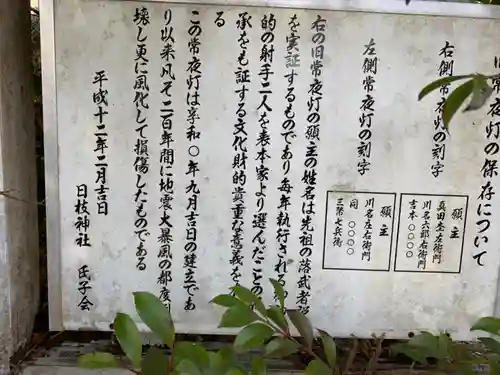 旧常夜灯の保存について
右側常夜灯の刻字
願主
真田杢左衛門
川名六郎右衛門
吉本〇〇〇〇
左側常夜灯の刻字
願主
川名庄右衛門
同〇〇〇〇
三幣七兵衛
右の旧常夜灯の願主の姓名は先祖の落武者
を実証するものであり毎年執行される
的の射手二人を表本家より選んだこの
承をも証する文化財的貴重な意義を
る
この常夜灯は享和〇年九月吉日の建立であ
り以来凡そ二百年間に地震大暴風の都度
壊し更に風化して損傷したものである
平成十二年二月吉日
日枝神社 氏子会